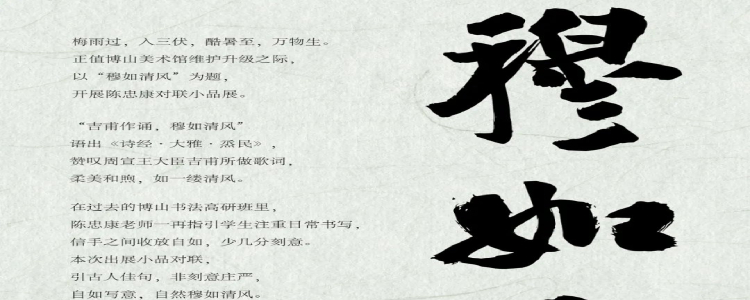 梅雨过，入三伏，酷暑至，万物生。
正值博山美术馆维护升级之际，
以“穆如清风”为题，
开展陈忠康对联小品展。
“吉甫作诵，穆如清风”
语出《诗经·大雅·烝民》，
赞叹周宣王大臣吉甫所做歌词，
柔美和煦，如一缕清风。
在过去的博山书法高研班里，
陈忠康老师一再指引学生注重日常书写，
信手之间收放自如，少几分刻意。
本次出展小品对联，
引古人佳句，非刻意庄严，
自如写意，自然穆如清风。
穆
如